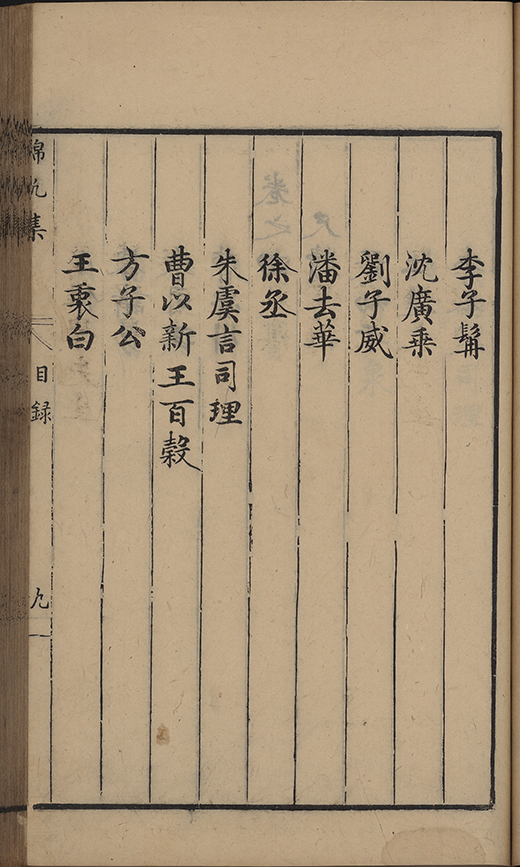 李子髯
沈廣乘
劉子威
潘去華
徐丞
朱虞言司理
曹以新王百穀
方子公
王秉白
錦帆集
目録
九